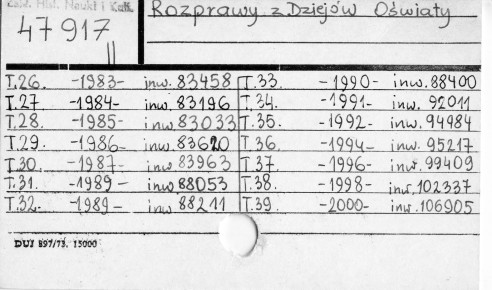 Zakł. Hist. Nauki i Kult.
47917
II
Rozprawy z Dziejów Oświaty
T.26. -1983- inw. 83458
T.27 -1984- inw. 83196
T.28. -1985- inw. 83033
T.29. -1986- inw. 83620
T.30. -1987- inw. 83963
T.31. -1989- inw. 88053
T.32. -1989- inw. 88211
T.33. -1990- inw. 88400
T.34. -1991- inw. 92011
T.35. -1992- inw. 94984
T.36. -1994- inw. 95217
T.37 -1996- inw. 99409
T.38. -1998- inw. 102337
T.39. -2000- inw. 106905
DUJ 897/73. 15000